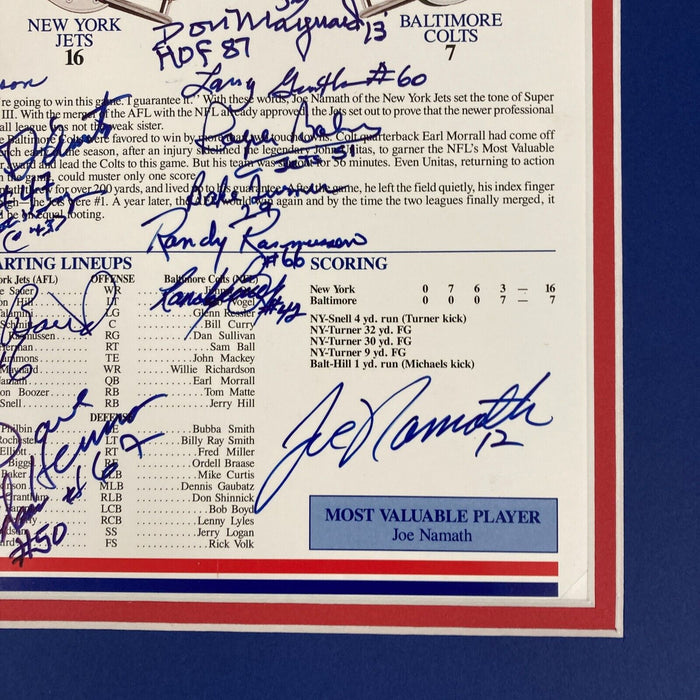 NEW YORK
JETS
16
BALTIMORE
COLTS
7
Don Maynard 13
HOF 87
Larry Grantham #60
're going to win this game. I guarantee it." With these words, Joe Namath of the New York Jets set the tone of Super
III. With the merger of the AFL with the NFL already approved, the Jets set out to prove that the newer professional
all league was not the weak sister.
Baltimore Colts were favored to win by more than two touchdowns. Colt quarterback Earl Morrall had come off
season, after an injury sidelined the legendary John Unitas, to garner the NFL's Most Valuable
award and lead the Colts to this game. But his team was for 56 minutes. Even Unitas, returning to action
in the game, could muster only one score.
for over 200 yards, and lived up to his guarantee. After the game, he left the field quietly, his index finger
the Jets were #1. A year later, the AFL would win again and by the time the two leagues finally merged, it
be on equal footing.
Ralph Baker
Jets 51
29
Randy Rasmussen
#66
#42
ARTING LINEUPS
ork Jets (AFL) OFFENSE Baltimore Colts (NFL)
e Sauer WR
on Hill LT Vogel
LG Glenn Ressler
C Bill Curry
RG Dan Sullivan
RT Sam Ball
ammons TE John Mackey
Maynard WR Willie Richardson
amath QB Earl Morrall
on Boozer RB Tom Matte
Snell RB Jerry Hill
DEFENSE
hilbin LE Bubba Smith
Rochester LT Billy Ray Smith
Elliott RT Fred Miller
Biggs RE Ordell Braase
Baker LLB Mike Curtis
MLB Dennis Gaubatz
rantham RLB Don Shinnick
LCB Bob Boyd
RCB Lenny Lyles
SS Jerry Logan
FS Rick Volk
Dave
Herman #67
#50
SCORING
New York 0 7 6 3 — 16
Baltimore 0 0 0 7 — 7
NY-Snell 4 yd. run (Turner kick)
NY-Turner 32 yd. FG
NY-Turner 30 yd. FG
NY-Turner 9 yd. FG
Balt-Hill 1 yd. run (Michaels kick)
Joe Namath
12
MOST VALUABLE PLAYER
Joe Namath